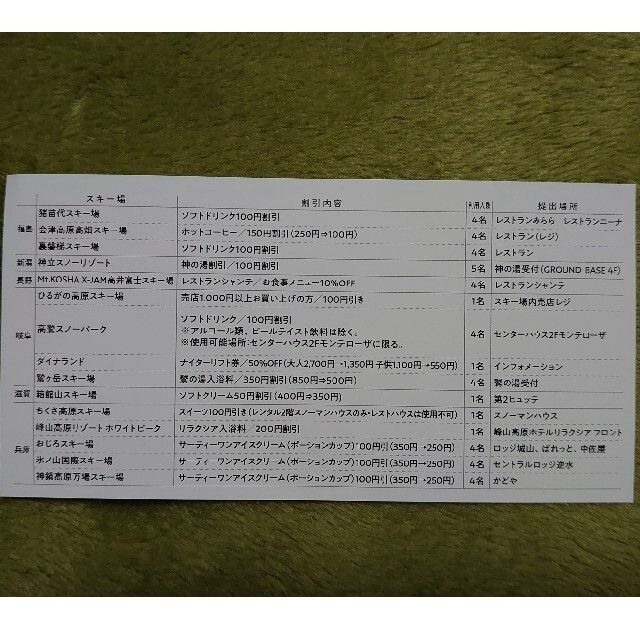 スキー場 割引内容 利用人数 提出場所
福島 猪苗代スキー場 ソフトドリンク100円割引 4名 レストランみらら レストランニーナ
会津高原高畑スキー場 ホットコーヒー/150円割引(250円⇒100円) 4名 レストラン(レジ)
裏磐梯スキー場 ソフトドリンク100円割引 4名 レストラン
新潟 神立スノーリゾート 神の湯割引/100円割引 5名 神の湯受付(GROUND BASE 4F)
長野 Mt.KOSHA X-JAM高井富士スキー場 レストランシャンテ/お食事メニュー10%OFF 4名 レストランシャンテ
岐阜 ひるがの高原スキー場 売店1,000円以上お買い上げの方/100円引き 1名 スキー場内売店レジ
高鷲スノーパーク ソフトドリンク/100円割引 4名 センターハウス2Fモンテローザ
※アルコール類、ビールテイスト飲料は除く。
※使用可能場所:センターハウス2Fモンテローザに限る。
ダイナランド ナイターリフト券/50%OFF(大人2,700円→1,350円 子供1,100円→550円) 1名 インフォメーション
鷲ヶ岳スキー場 鷲の湯入浴料/350円割引(850円⇒500円) 4名 鷲の湯受付
滋賀 箱館山スキー場 ソフトクリーム50円割引(400円⇒350円) 1名 第2ヒュッテ
兵庫 ちくさ高原スキー場 スイーツ100円引き(レンタル2階スノーマンハウスのみ・レストハウスは使用不可) 1名 スノーマンハウス
峰山高原リゾート ホワイトピーク リラクシア入浴料/200円割引 1名 峰山高原ホテルリラクシア フロント
おじろスキー場 サーティーワンアイスクリーム(ポーションカップ)100円引(350円→250円) 4名 ロッジ城山、ぱれっと、中佐屋
氷ノ山国際スキー場 サーティーワンアイスクリーム(ポーションカップ)100円引(350円→250円) 4名 セントラルロッジ逆水
神鍋高原万場スキー場 サーティーワンアイスクリーム(ポーションカップ)100円引(350円→250円) 4名 かどや